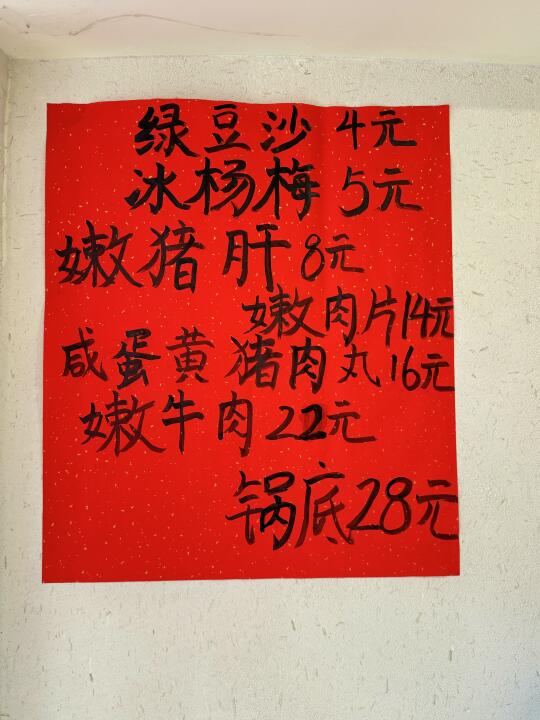 绿豆沙 4元
冰杨梅 5元
嫩猪肝 8元
嫩肉片14元
咸蛋黄猪肉丸16元
嫩牛肉22元
锅底28元